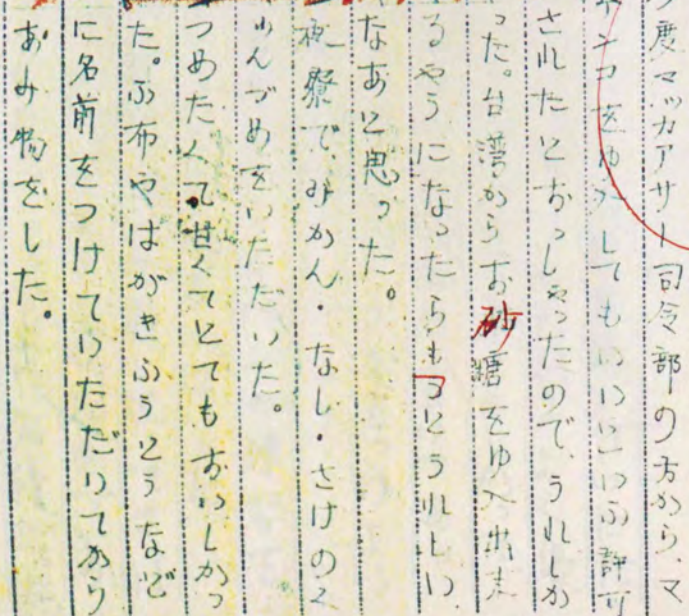 度マッカアサー司令部の方から、マ
ンゴをゆ入してもいいといふ許可
されたとおっしゃったので、うれしか
った。台湾からお砂糖をゆ入出来
るやうになったらもっとうれしい
なあと思った。
夜寮で、みかん・なし・さけのく
んづめをいただいた。
つめたくて甘くてとてもおいしかっ
た。ふ布やはがきふうとうなど
に名前をつけていただいてから
あみ物をした。